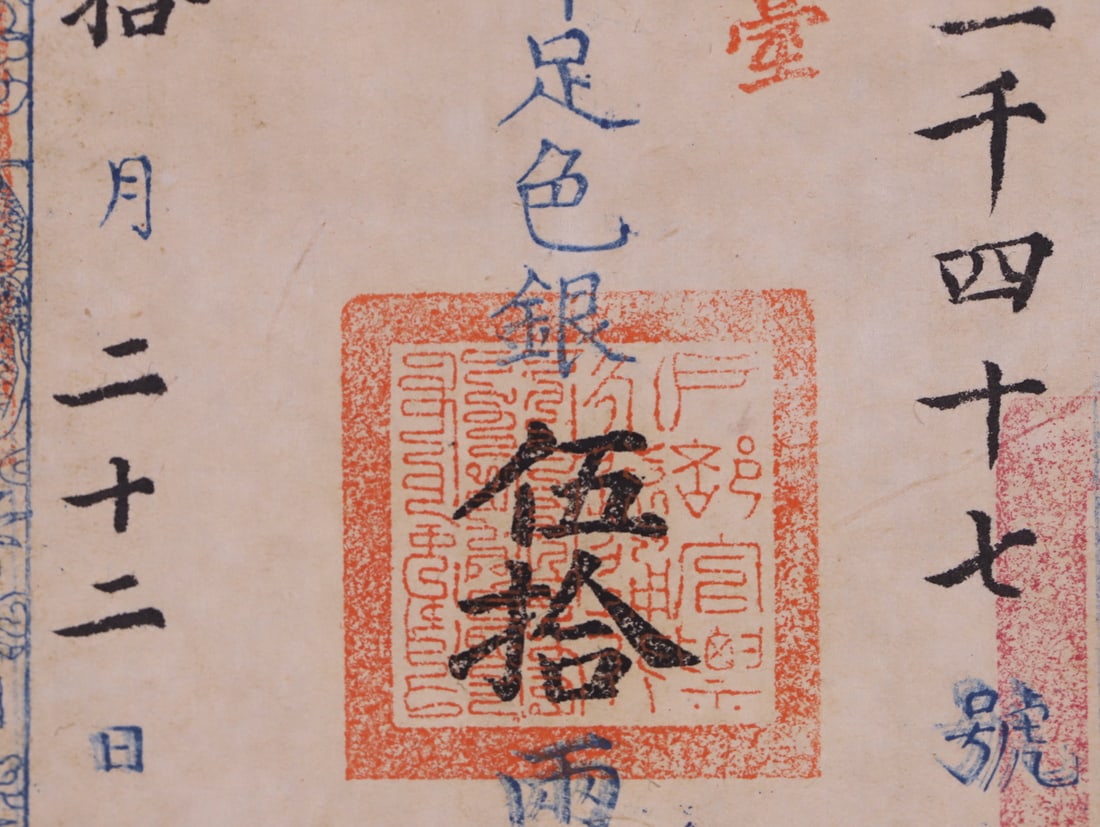 一千四十七號
臺
足色銀伍拾兩
戶部官票
拾月二十二日